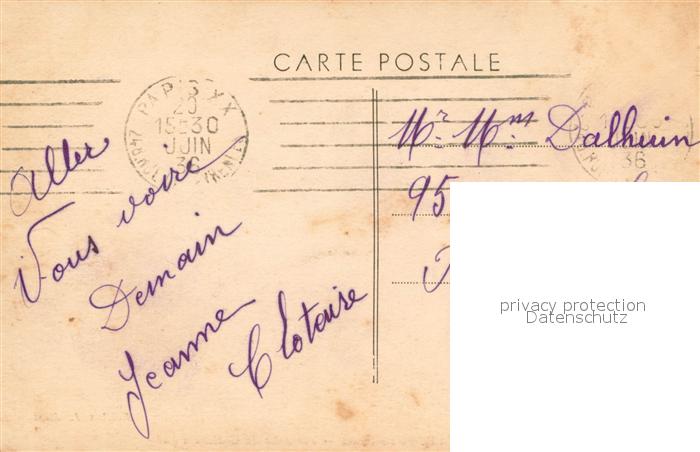 CARTE POSTALE
PARIS XX
20
15H30
JUIN
36
Aller
Vous voire
Demain
Jeanne
Clotaire
Mr. Mme Dalhuin
95
36
privacy protection
Datenschutz